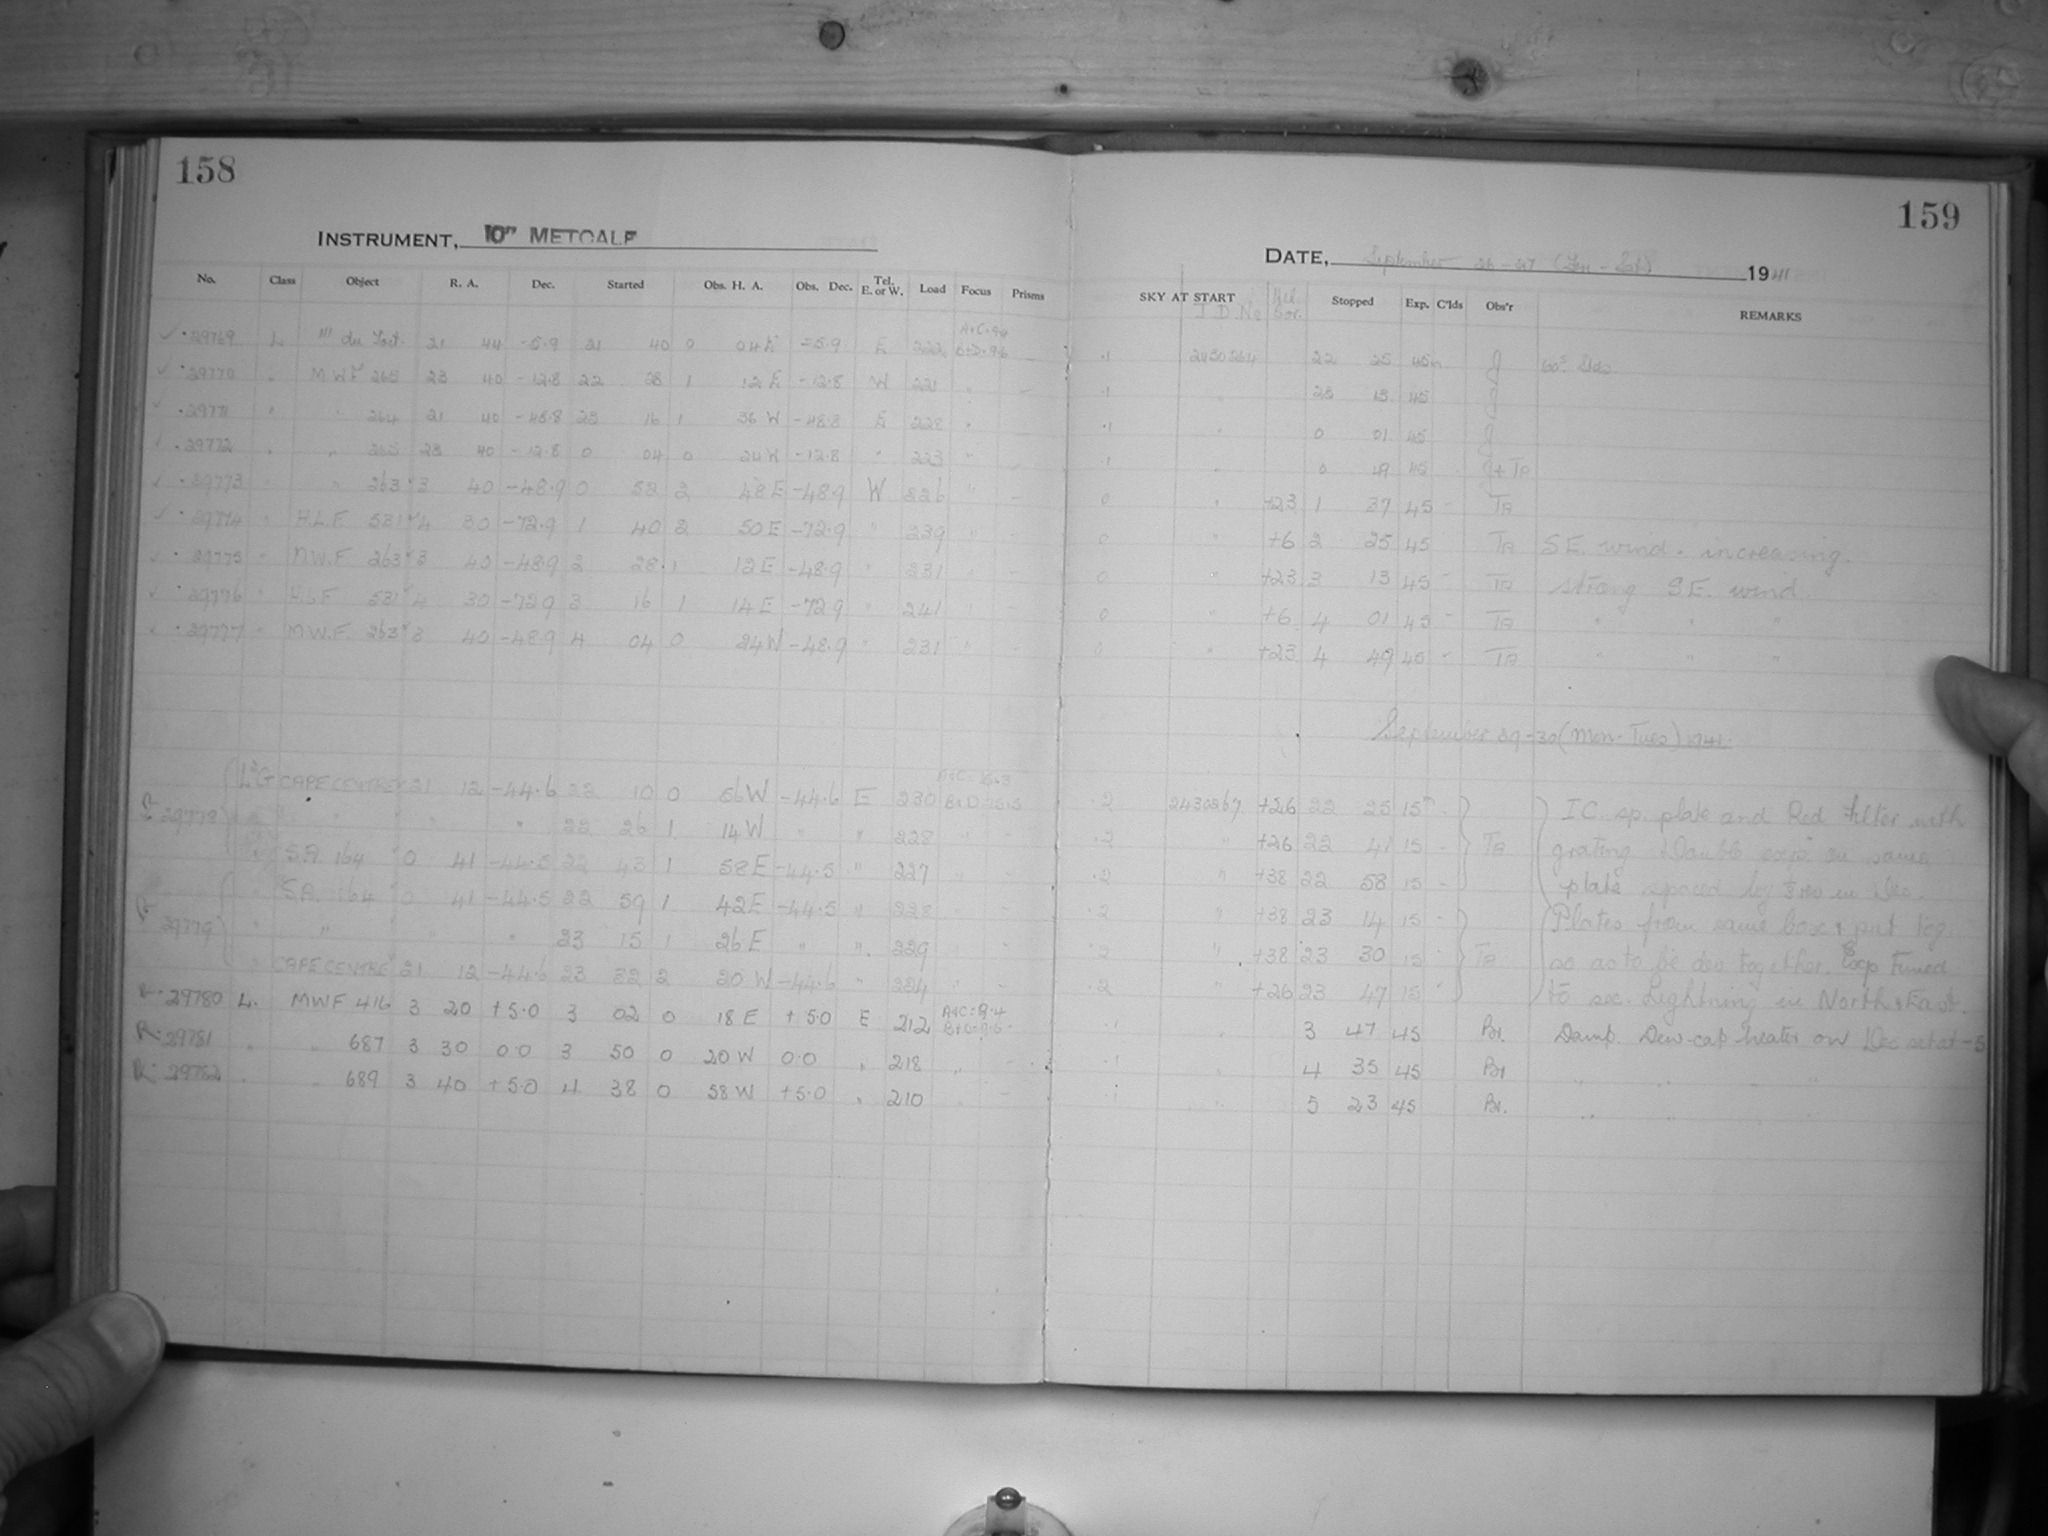 158
INSTRUMENT, 10" METCALF
No. Class Object R. A. Dec. Started Obs. H. A. Obs. Dec. Tel. E. or W. Load Focus Prisms
29769 L 21 44 -5.9 21 40 0 04 E -5.9 E 222
29770 " MWF 265 23 40 -12.8 22 28 1 12 E -12.8 W 221 "
29771 " " 264 21 40 -48.8 23 16 1 36 W -48.8 E 228 "
29772 " " 265 23 40 -12.8 0 04 0 24 W -12.8 " 223 "
29773 " " 263 3 40 -48.9 0 52 2 48 E -48.9 W 226 " -
29774 " H.L.F 531 4 30 -72.9 1 40 2 50 E -72.9 " 239 " -
29775 " M.W.F 263 3 40 -48.9 2 28 1 12 E -48.9 " 231 " -
29776 " H.L.F 531 4 30 -72.9 3 16 1 14 E -72.9 " 241 " -
29777 " M.W.F. 263 3 40 -48.9 4 04 0 24 W -48.9 " 231 " -
CAPE CENTRE 21 12 -44.6 22 10 0 56 W -44.6 E 230
29778 " " " " 22 26 1 14 W " " 228 " -
S.A. 164 0 41 -44.5 22 43 1 58 E -44.5 " 227 " -
S.A. 164 0 41 -44.5 22 59 1 42 E -44.5 " 228 " -
29779 " " " " 23 15 1 26 E " " 229 " -
CAPE CENTRE 21 12 -44.6 23 32 2 20 W -44.6 " 224 " -
29780 L. MWF 416 3 20 +5.0 3 02 0 18 E +5.0 E 212 A+C=9.4
29781 " " 687 3 30 0.0 3 50 0 20 W 0.0 " 218 " -
29782 " " 689 3 40 +5.0 4 38 0 58 W +5.0 " 210 " -
159
DATE, September 26-27 (Fri - Sat) 1941
SKY AT START J.D. No Stopped Exp. C'lds Obs'r REMARKS
.1 2430264 22 25 45m J
.1 " 23 13 45 J
.1 " 0 01 45 J
.1 " 0 49 45 J + TB
0 " +23 1 37 45 - TB
0 " +6 2 25 45 TB S.E. wind. increasing.
0 " +23 3 13 45 - TB strong S.E. wind.
0 " +6 4 01 45 - TB " " "
0 " +23 4 49 45 - TB " " "
September 29-30 (Mon-Tues) 1941
.2 2430267 +26 22 25 15m IC. sp. plate and Red filter with
.2 " +26 22 41 15 - TB grating Double exp. on same
.2 " +38 22 58 15 - plate spaced by in Dec.
.2 " +38 23 14 15 - Plates from same box & put tog.
.2 " +38 23 30 15 TB so as to be dev together. Exp timed
.2 " +26 23 47 15 to sec. Lightning in North & East.
.1 " 3 47 45 Br. Damp. Dew-cap heater on Dec set at -5
.1 " 4 35 45 Br " " " "
.1 " 5 23 45 Br. " " " "